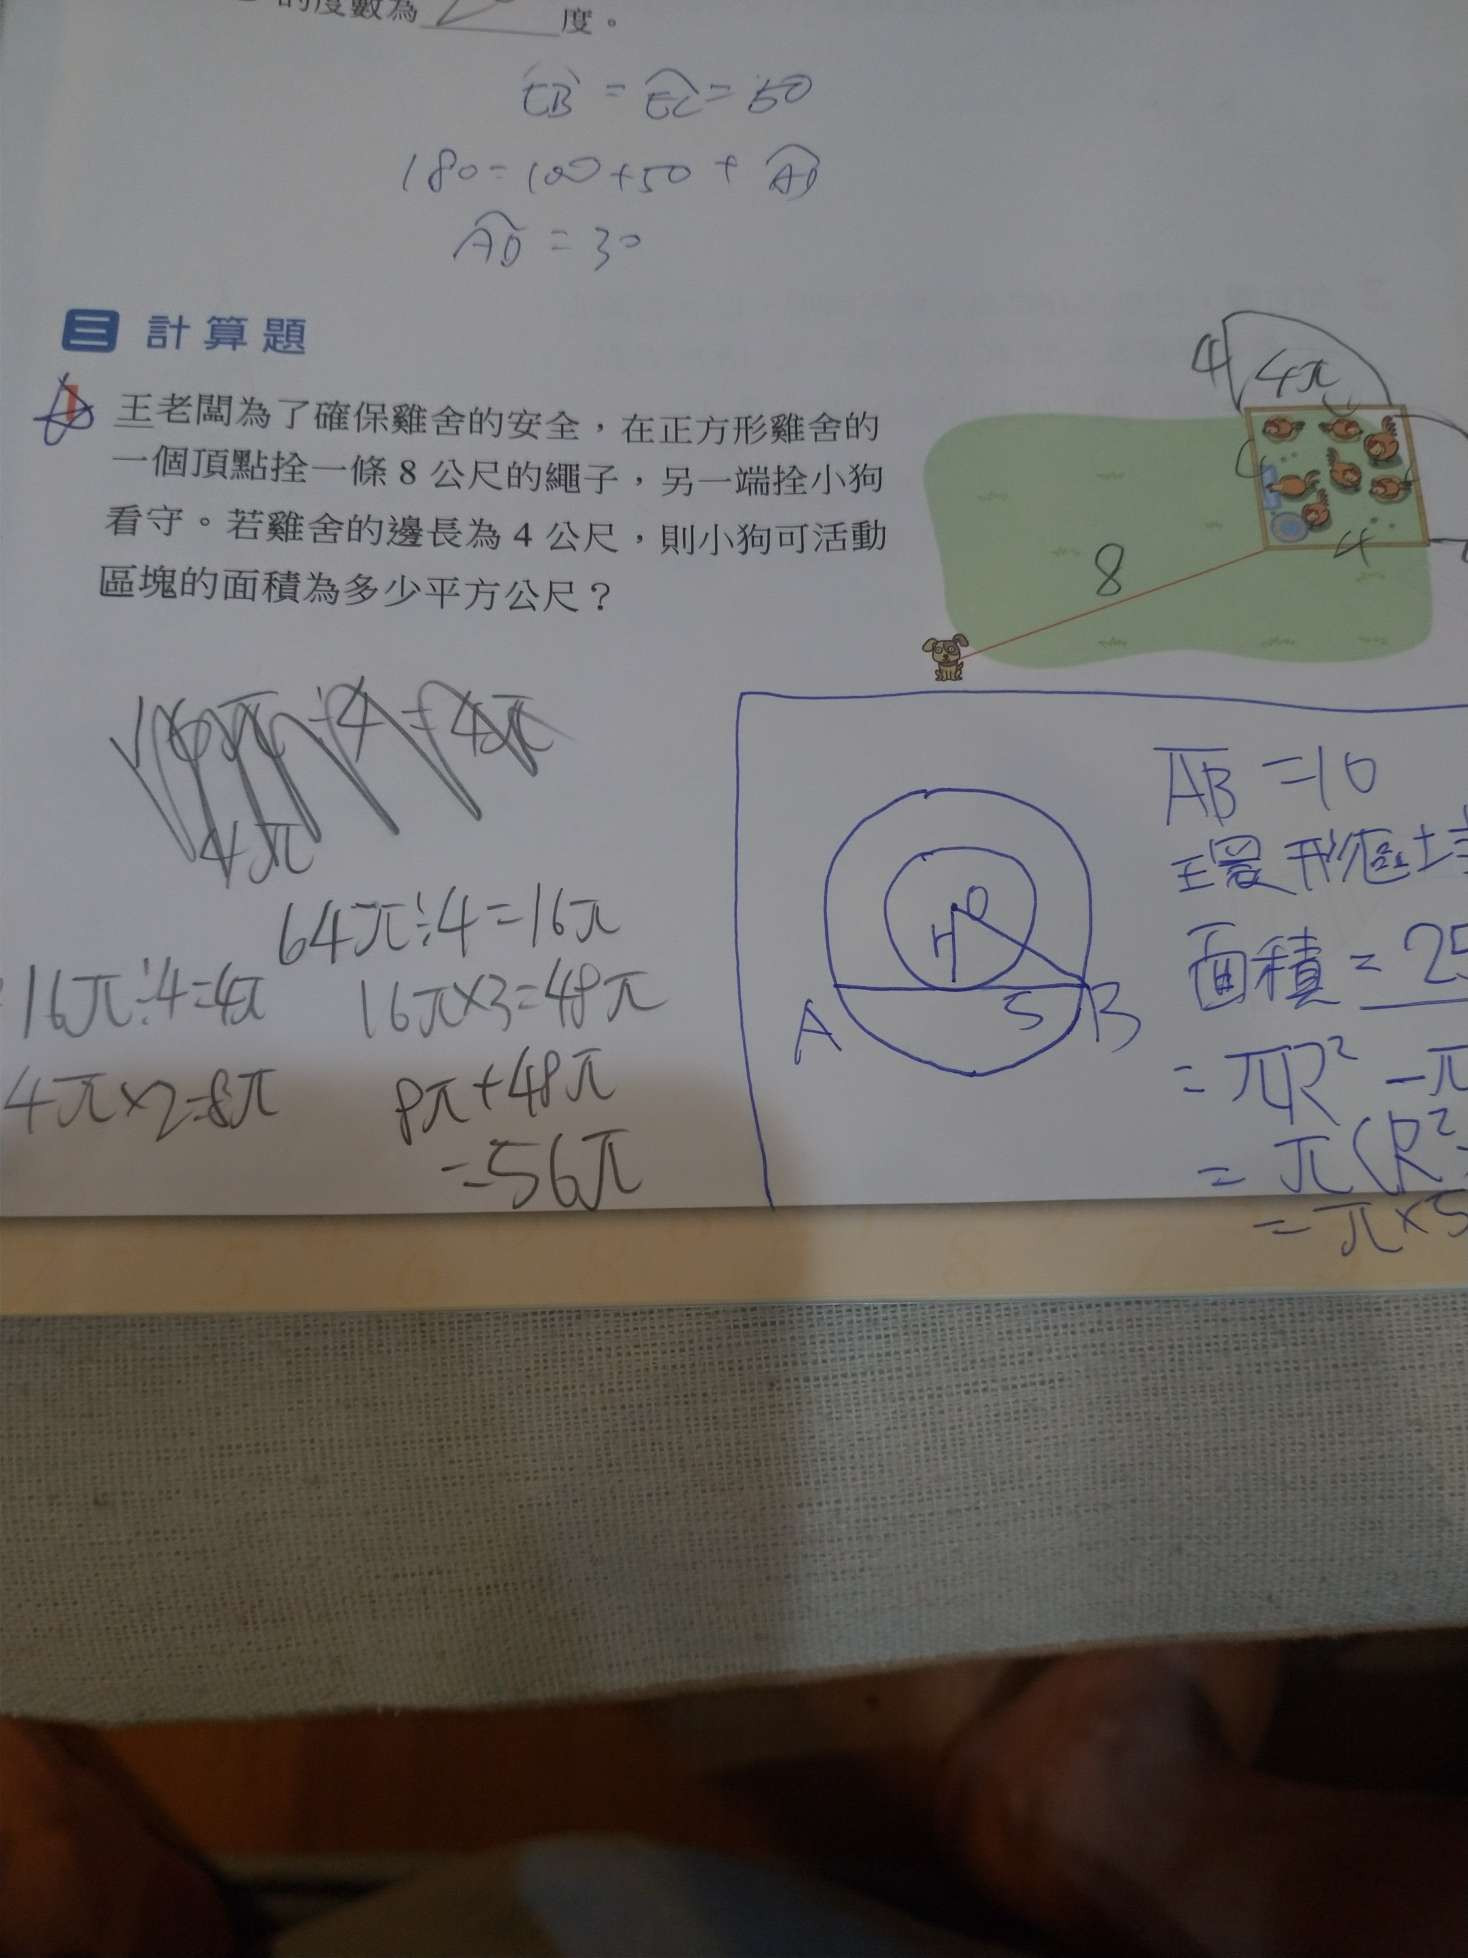 的度數為 度。
EB = EC = 50
180 = 100 + 50 + AD
AD = 30
三 計算題
1 王老闆為了確保雞舍的安全，在正方形雞舍的
一個頂點拴一條 8 公尺的繩子，另一端拴小狗
看守。若雞舍的邊長為 4 公尺，則小狗可活動
區塊的面積為多少平方公尺？
4
4π
4
4
8
16π÷4=4π
4π
64π÷4=16π
16π÷4=4π
16π×3=48π
4π×2=8π
8π+48π
=56π
O
H
A
5
B
AB =10
環形區
面積 = 25
= πR² -π
= π(R²
= π×5